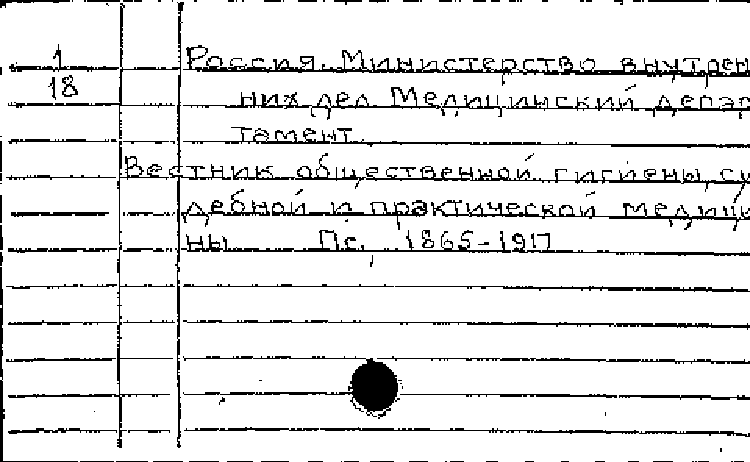 1
18
Россия. Министерство внутрен
них дел Медицинский депар
тамент.
Вестник общественной гигиены, су
дебной и практической медици
ны Пг. 1865-1917